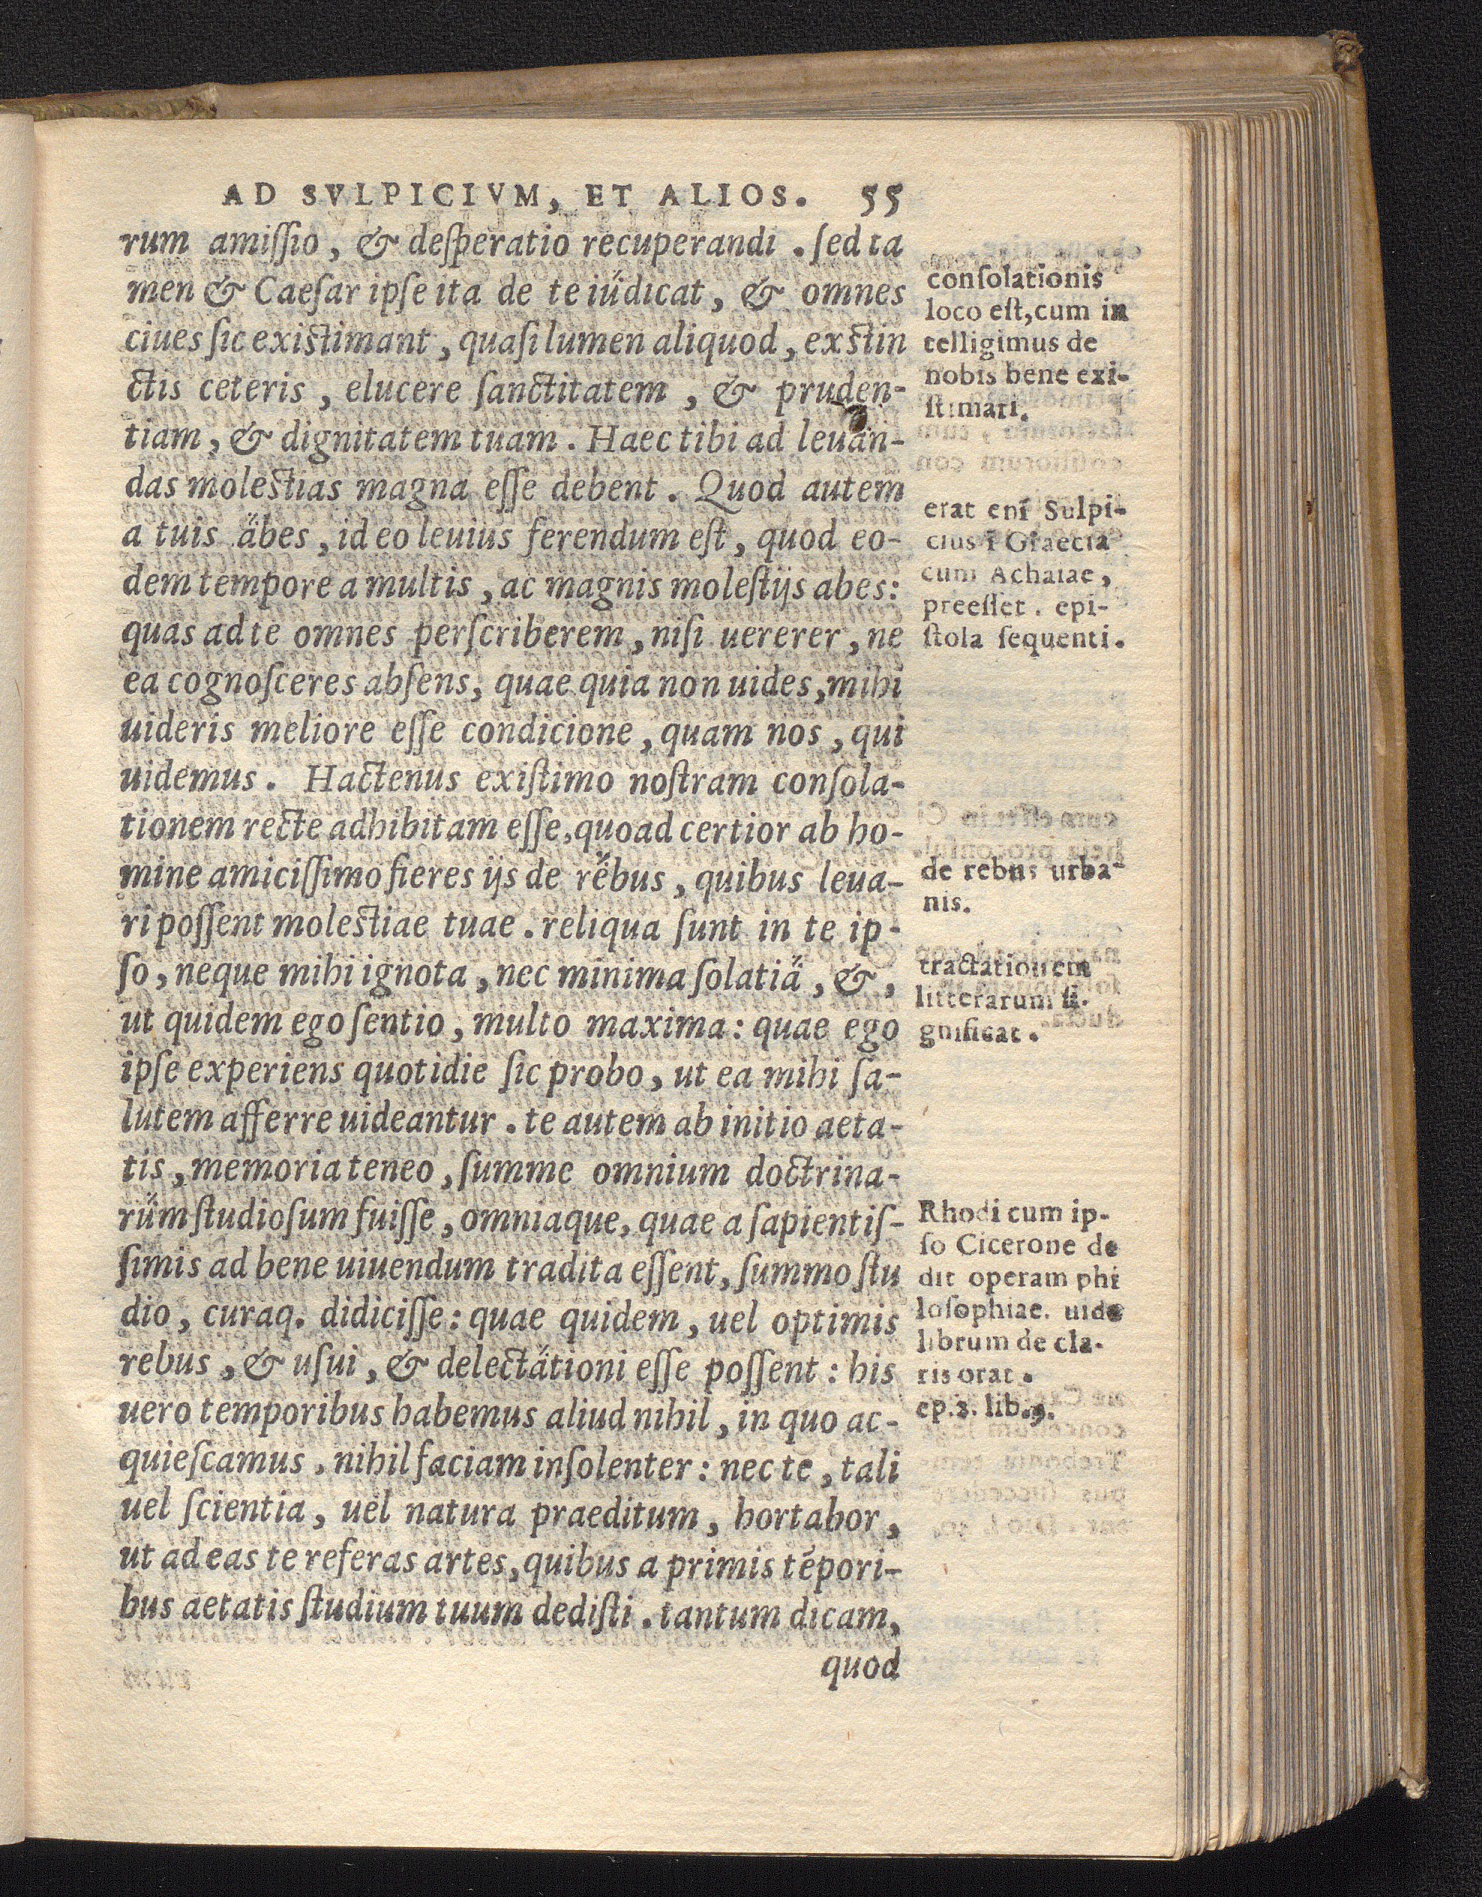 AD SVLPICIVM, ET ALIOS. 55
rum amiſſio, & deſperatio recuperandi. ſed ta
men & Caeſar ipſe ita de te iudicat, & omnes
ciues ſic existimant, quaſi lumen aliquod, exstin
ctis ceteris, elucere ſanctitatem, & pruden-
tiam, & dignitatem tuam. Haec tibi ad leuan-
das molestias magna eſſe debent. Quod autem
a tuis äbes, id eo leuius ferendum eſt, quod eo-
dem tempore a multis, ac magnis moleſtijs abes:
quas ad te omnes perſcriberem, niſi uererer, ne
ea cognoſceres abſens, quae quia non uides, mihi
uideris meliore eſſe condicione, quam nos, qui
uidemus. Hactenus exiſtimo noſtram conſola-
tionem recte adhibitam eſſe, quoad certior ab ho-
mine amiciſſimo fieres ijs de rëbus, quibus leua-
ri poſſent molestiae tuae. reliqua ſunt in te ip-
ſo, neque mihi ignota, nec minima ſolatiä, &,
ut quidem ego ſentio, multo maxima: quae ego
ipſe experiens quotidie ſic probo, ut ea mihi ſa-
lutem afferre uideantur. te autem ab initio aeta-
tis, memoria teneo, ſumme omnium doctrina-
rüm ſtudioſum fuiſſe, omniaque, quae a ſapientiſ-
ſimis ad bene uiuendum tradita eſſent, ſummo ſtu
dio, curaq. didiciſſe: quae quidem, uel optimis
rebus, & uſui, & delectätioni eſſe poſſent: his
uero temporibus habemus aliud nihil, in quo ac-
quieſcamus. nihil faciam inſolenter: nec te, tali
uel ſcientia, uel natura praeditum, hortabor,
ut ad eas te referas artes, quibus a primis tēpori-
bus aetatis ſtudium tuum dediſti. tantum dicam,
quod
conſolationis
loco eſt, cum in
telligimus de
nobis bene exi-
ſtimari.
erat enī Sulpi-
cius ī Graecia
cum Achaiae,
preeſſet. epi-
ſtola ſequenti.
de rebus urba-
nis.
tractationem
litterarum ſi-
gnificat.
Rhodi cum ip-
ſo Cicerone de
dit operam phi
loſophiae. uide
librum de cla-
ris orat.
ep.3. lib.9.